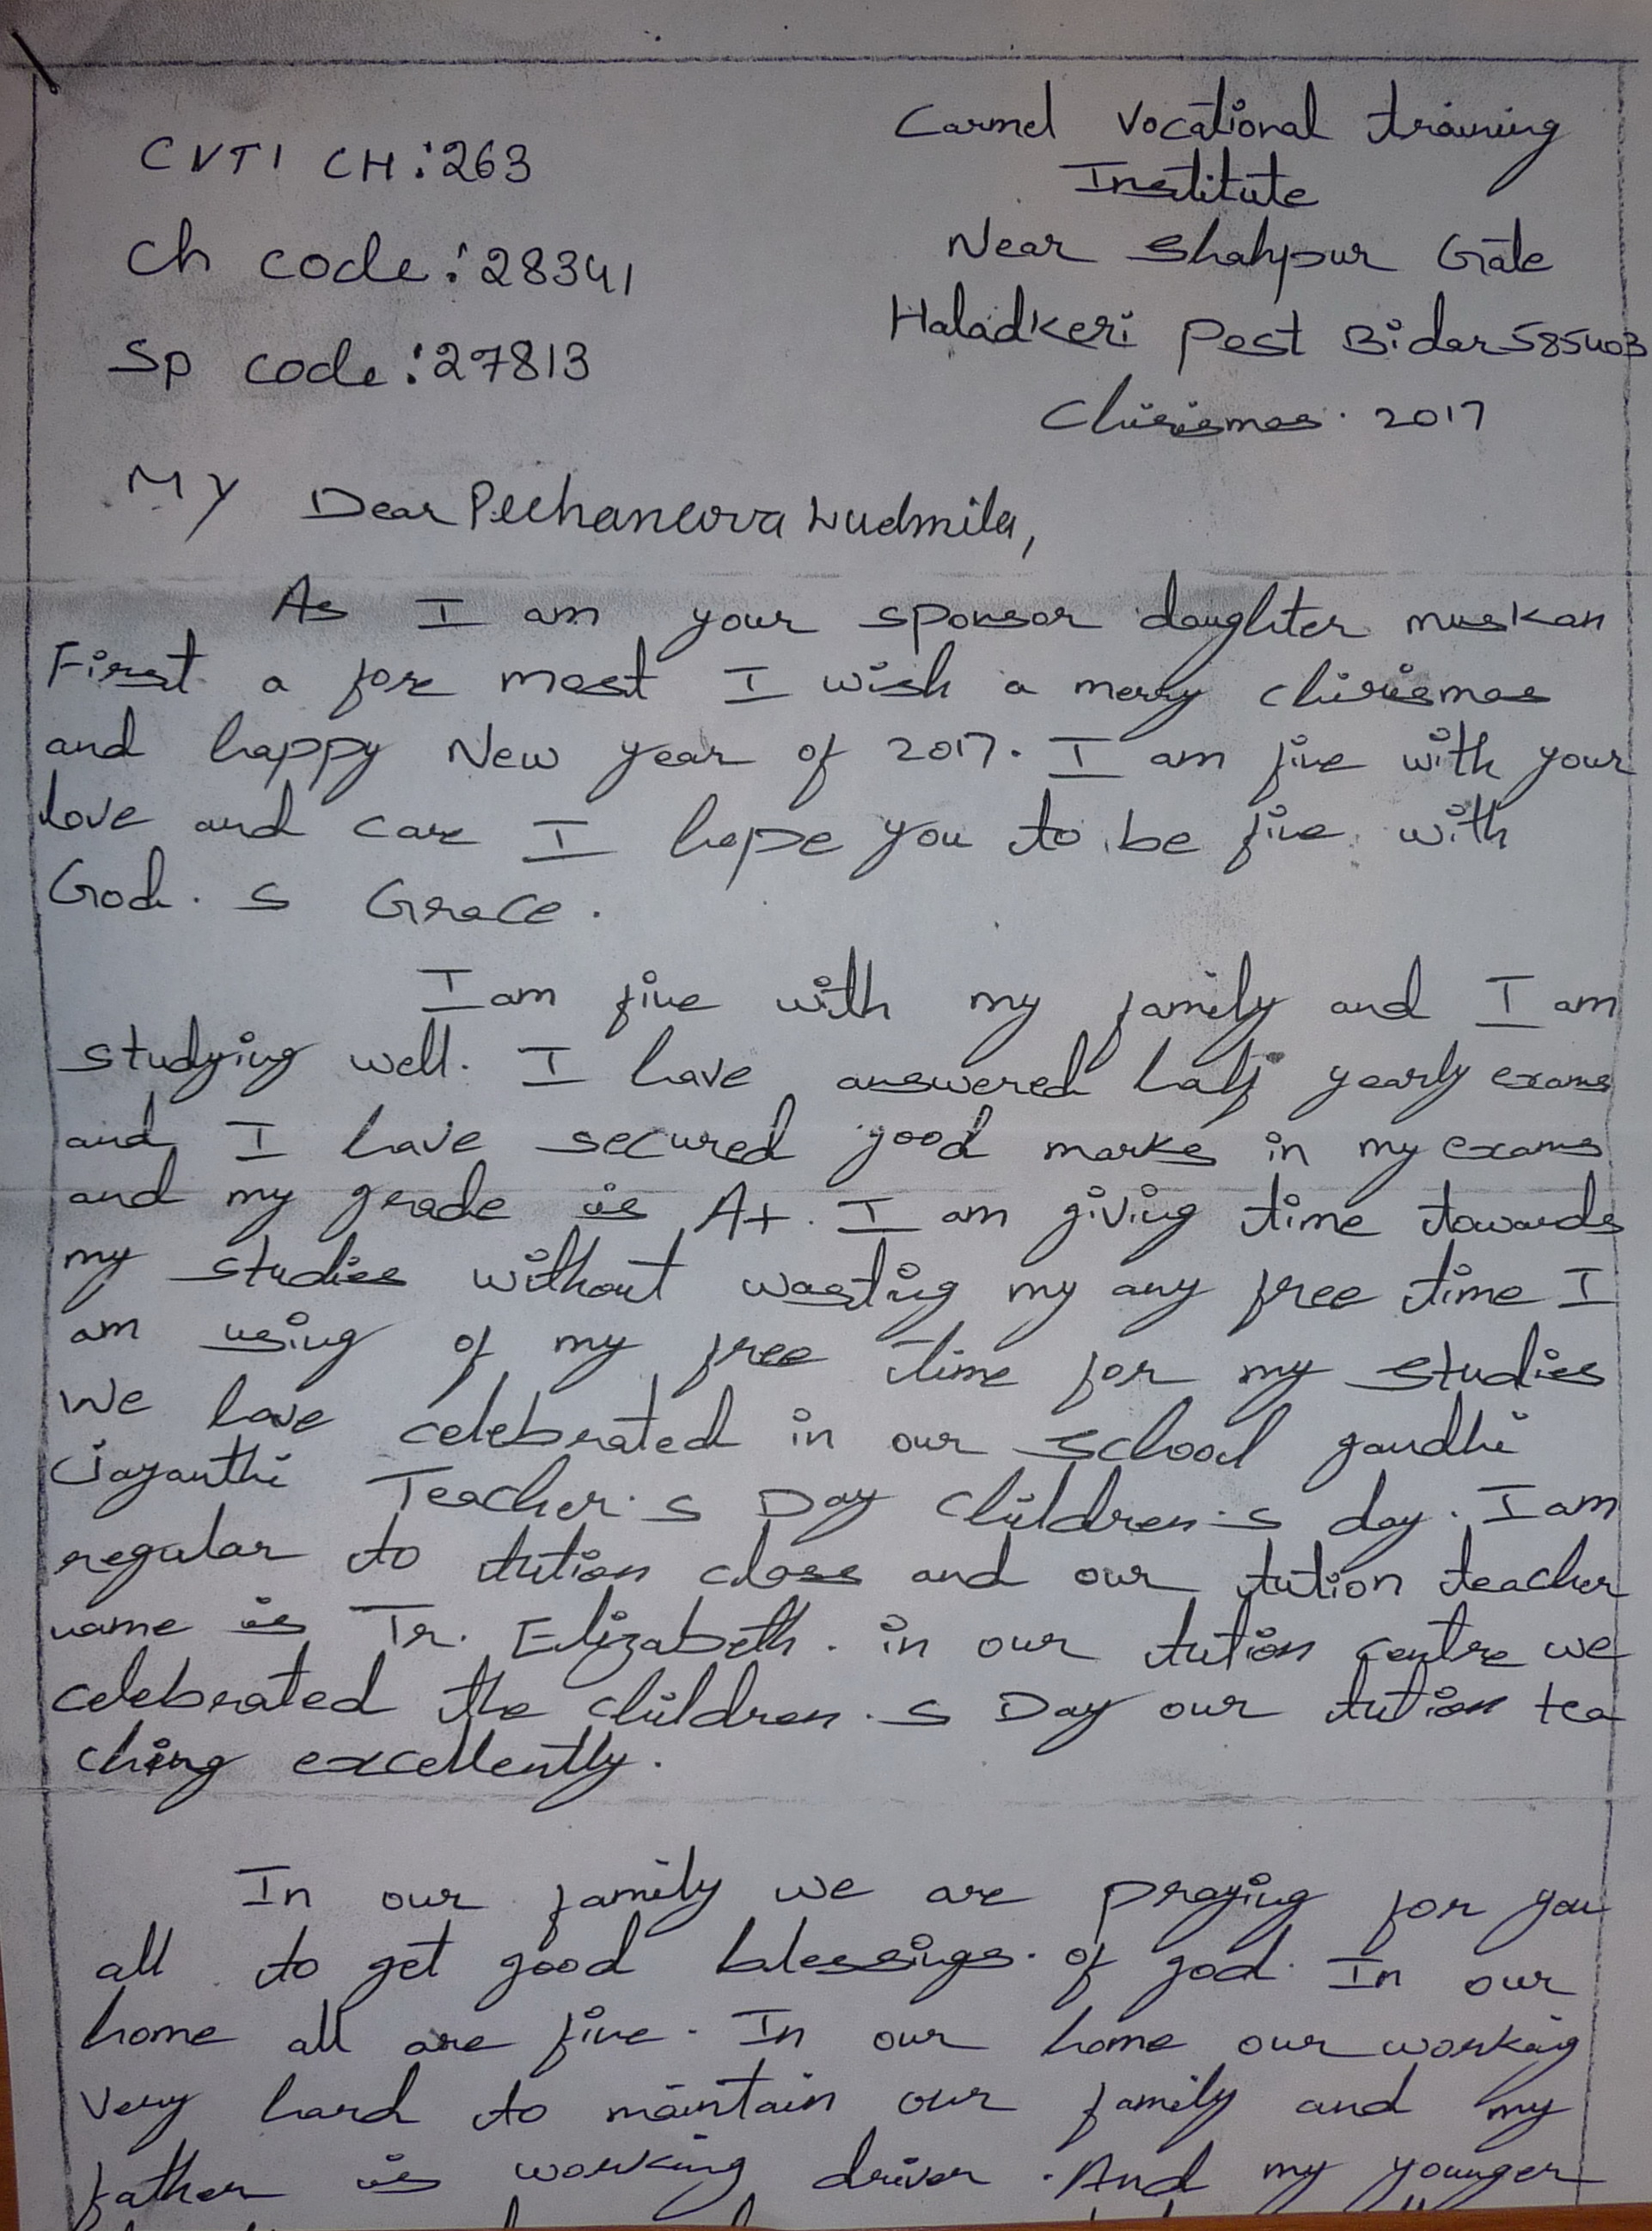 CVTI CH:263
Ch code:28341
Sp code:27813
Carmel Vocational training
Institute
Near Shahpur Gate
Haladkeri Post Bidar 585403
Chirismas. 2017
My Dear Pechancova Ludmila,
As I am your sponsor daughter muskan
First a for most I wish a merry chirismas
and happy New year of 2017. I am fine with your
love and care I hope you to be fine with
God. s Grace.
I am fine with my family and I am
studying well. I have answered half yearly exams
and I have secured good marks in my exams
and my grade is A+. I am giving time towards
my studies without wasting my any free time I
am using of my free time for my studies
We have celebrated in our school gandhi
Jayanthi Teacher.s Day children.s day. I am
regular to tution class and our tution teacher
name is Tr. Elizabeth. in our tution centre we
celebrated the children.s Day our tution tea
ching excellently.
In our family we are praying for you
all to get good blessings of god. In our
home all are fine. In our home our working
very hard to maintain our family and my
father is working driver. And my younger